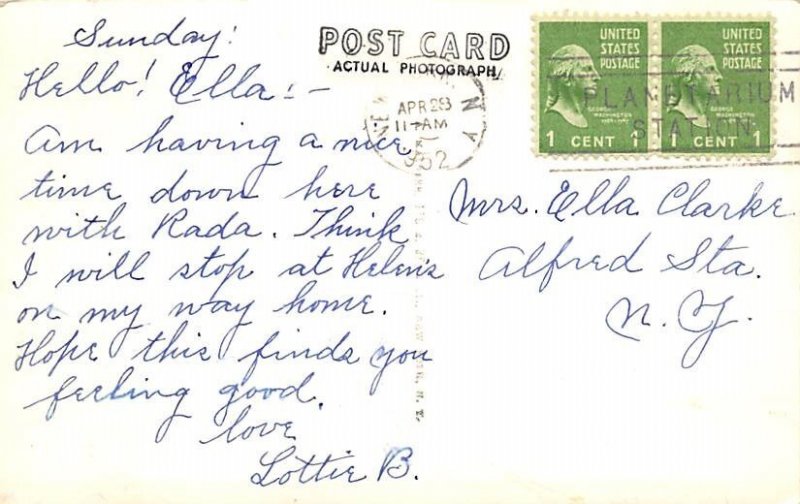 Sunday!
Hello! Ella:-
Am having a nice
time down here
with Rada. Think
I will stop at Helen's
on my way home.
Hope this finds you
feeling good.
love
Lottie B.
POST CARD
ACTUAL PHOTOGRAPH
NEW
N Y
APR 28
11-AM
1952
UNITED
STATES
POSTAGE
GEORGE
WASHINGTON
1 CENT 1
UNITED
STATES
POSTAGE
GEORGE
WASHINGTON
1 CENT 1
PLANETARIUM
STATION
Mrs. Ella Clarke
Alfred Sta.
N. Y.